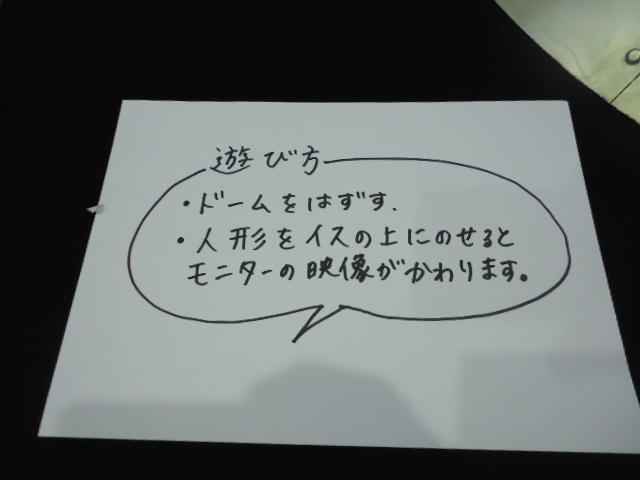 遊び方
・ドームをはずす.
・人形をイスの上にのせると
モニターの映像がかわります。